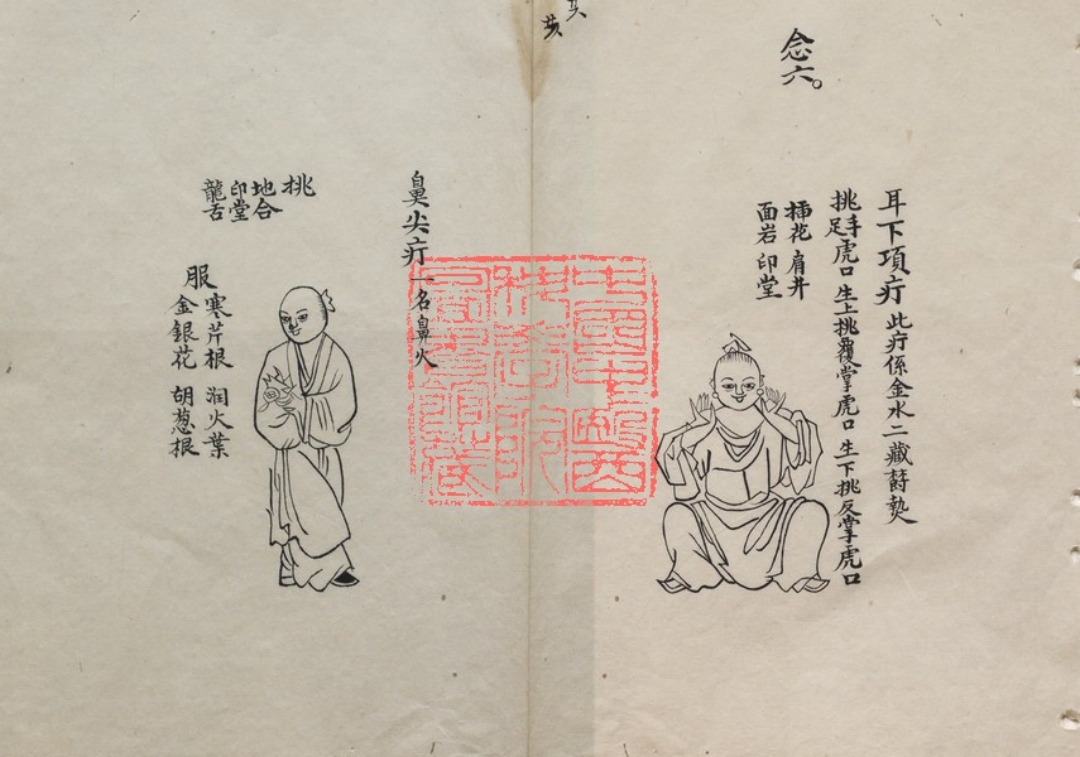 念六。
耳下項疔 此疔係金水二藏欝𤍠
挑手足虎口 生上挑覆掌虎口 生下挑反掌虎口
挿花 肩井
面岩 印堂
鼻尖疔 一名鼻火
挑
地合
印堂
龍舌
服
寒芹根 润火葉
金銀花 胡葱根